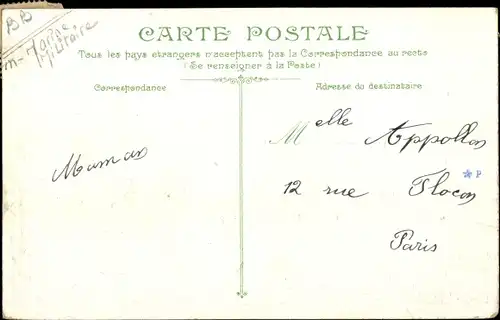 BB
m- Marine
Militaire
CARTE POSTALE
Tous les pays etrangers n'acceptent pas la Correspondance au recto
(Se renseigner à la Poste)
Correspondance
Adresse du destinataire
Maman
Melle Appollon
12 rue Flocon
P
Paris